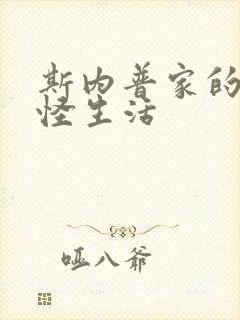 斯内普家的
怪生活
哑八爷